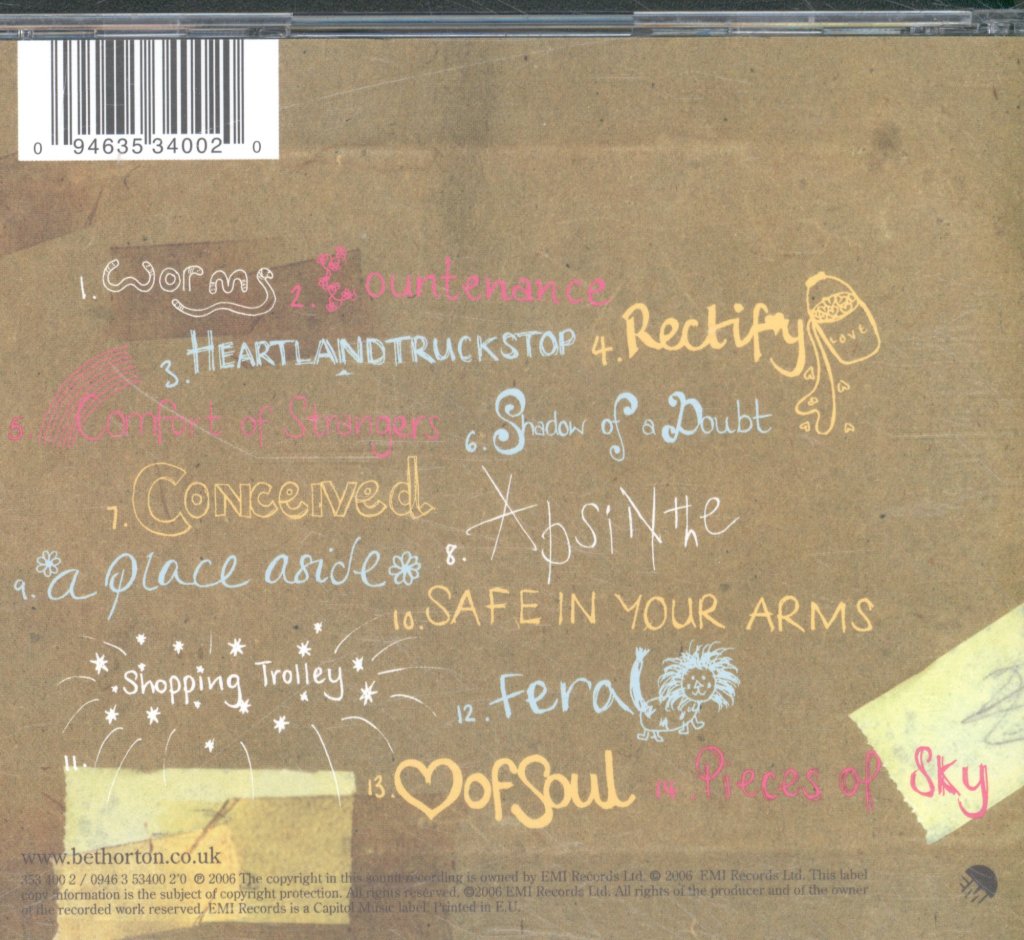 0 94635 34002 0
1. Worms
2. Countenance
3. HEARTLANDTRUCKSTOP
4. Rectify
LOVE
5. Comfort of Strangers
6. Shadow of a Doubt
7. Conceived
8. Absinthe
9. a place aside
10. SAFE IN YOUR ARMS
Shopping Trolley
11.
12. feral
13. ♥ofSoul
14. Pieces of Sky
www.bethorton.co.uk
353 400 2 / 0946 3 53400 2'0 ℗ 2006 The copyright in this sound recording is owned by EMI Records Ltd. © 2006 EMI Records Ltd. This label
copy information is the subject of copyright protection. All rights reserved. ©2006 EMI Records Ltd. All rights of the producer and of the owner
of the recorded work reserved. EMI Records is a Capitol Music label. Printed in E.U.